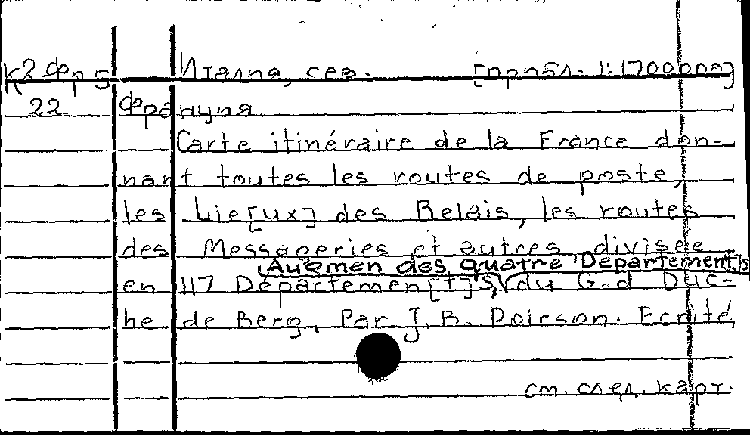 К2 Фр 5 Италия, сев. [прибл. 1:1700000]
22 Франция
Carte itinéraire de la France don-
nant toutes les routes de poste,
les Lie[ux] des Relais, les routes
des Messageries et autres divisée
(Augmen des quatre Departement)s
en 117 Départemen[t]s, du G.d Duc-
he de Berg. Par J. B. Poirson. Ecrite
см. след. карт.